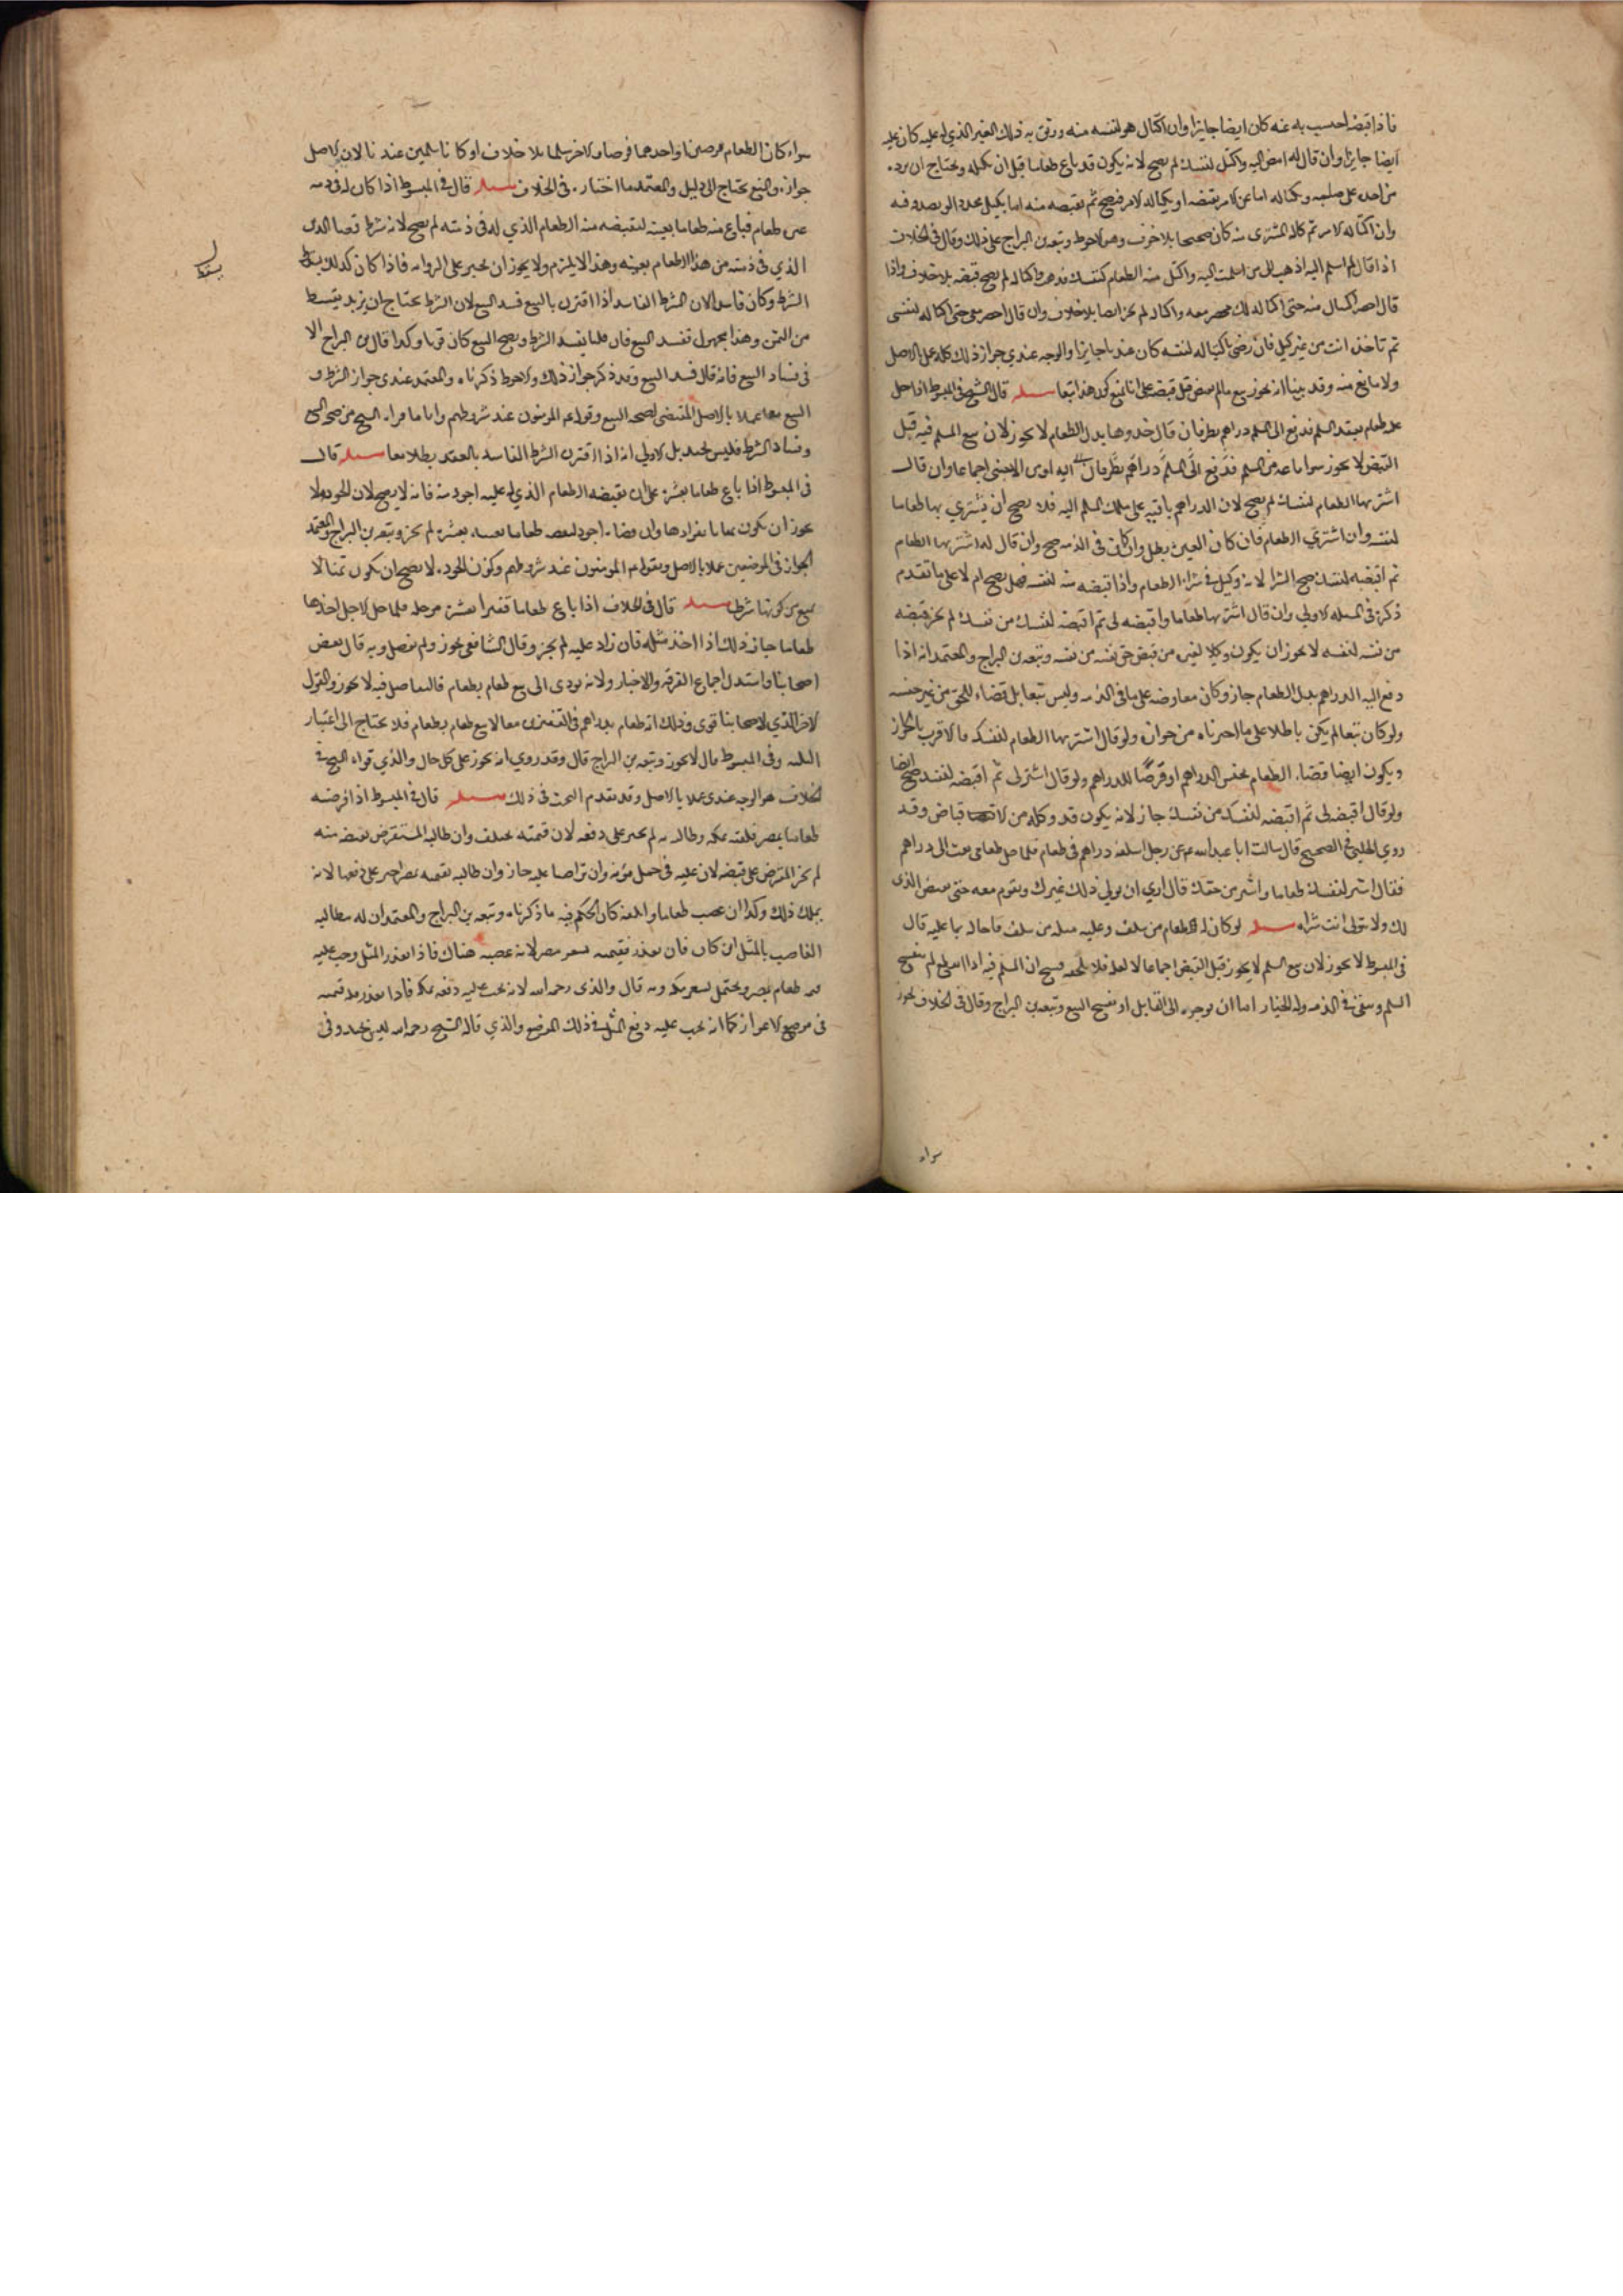 فاذا قبضه احتسب به عنه كان ايضا جايزا وان اكتال هو لنفسه منه ووثق به ذلك الغير الذي له عليه كان عليه
ايضا جايزا وان قال له امض اليه واكتل لنفسك لم يصح لانه يكون قد باع طعاما قبل ان يكيله ويحتاج ان يرد
من اخذه على صاحبه ويكتاله اما عن الامر بقبضه او يكتاله الامر فيصح ثم يقبضه منه اما بكيل مجدد او يصدقه فيه
وان اكتاله الامر ثم كاله المشترى منه كان صحيحا بلا خوف وهو الاحوط وتبعه بن البراج على ذلك وقال فى الخلاف
اذا قال لم اسلم اليه اذهب الى من اسلمت اليه واكتل منه الطعام لنفسك فذهب واكتاله لم يصح قبضه بلا خلاف واذا
قال احضر اكتيالى منه حتى اكتاله لك فحضر معه واكتاله لم يجز ايضا بلا خلاف وان قال احضر معى حتى اكتاله لنفسى
ثم تاخذه انت من غير كيل فان رضى باكتياله لنفسه كان عندنا جايزا والوجه عندي جواز ذلك كله عملا بالاصل
ولا مانع منه وقد بينا انه يجوز بيع ما لم يقبض قبل قبضه على انا نمنع كون هذا بيعا مسئله قال الشيخ فى المبسوط اذا حل
عليه طعام بعقد السلم فدفع الى المسلم دراهم نظر فان قال خذوها بدل الطعام لا يجوز لان بيع المسلم فيه قبل
القبض لا يجوز سوا باعه من المسلم
اشتر بها الطعام لنفسك لم يصح لان الدراهم باقيه على ملك المسلم اليه فلا يصح ان يشتري بها طعاما
لنفسه وان اشتري الطعام فان كان العين بطل وان كان فى الذمه صح وان قال له اشتر بها الطعام
ثم اقبضه لنفسك صح الشرا لانه وكيل فى شراء الطعام واذا قبضه منه لنفسه فهل يصح ام لا على ما تقدم
ذكره فى المسله الاولي وان قال اشتر بها طعاما واقبضه لى ثم اقبضه لنفسك من نفسك لم يجز قبضه
من نفسه لنفسه لا يجوز ان يكون وكيلا لغيره من قبض حق نفسه من نفسه وتبعه بن البراج والمعتمد انه اذا
دفع اليه الدراهم بدل الطعام جاز وكان معاوضه على ما فى الذمه وليس بيعا بل قضاء للحق من غير جنسه
ولو كان بيعا لم يكن باطلا على ما اخترناه من جوازه ولو قال اشتر بها الطعام لنفسك فالاقرب الجواز
ويكون ايضا قضاء الطعام بجنس الدراهم او قرضا للدراهم ولو قال اشتر لى ثم اقبضه لنفسك صح ايضا
ولو قال اقبضه لى ثم اقبضه لنفسك من نفسك جاز لانه يكون قد وكله من الاقباض وقد
روي الحلبي فى الصحيح قال سالت ابا عبد الله عم عن رجل اسلفته دراهم فى طعام فلما حل طعامى بعث الى دراهم
فقال اشتر لنفسك طعاما واشتر من حقك قال اري ان يولي ذلك غيرك ويقوم معه حتى يقبض الذى
لك ولا تولى انت شراه مسئله لو كان له طعام من سلف وعليه مثله من سلف فاحاله بما عليه قال
فى المبسوط لا يجوز لان بيع السلم لا يجوز قبل القبض اجماعا لا لعله فلا يلحقه فسخ لان المسلم فيه اذا انقطع لم ينفسخ
السلم وبقى فى الذمه وله الخيار اما ان يوخره الى القابل او يفسخ البيع وتبعه بن البراج وقال فى الخلاف يجوز
سواء
سواء كان الطعام قرضين او احدهما قرضا والاخر سلما بلا خلاف او كانا سلمين عندنا لان الاصل
جوازه والمنع يحتاج الى دليل والمعتمد ما اختاره فى الخلاف مسئله قال فى المبسوط اذا كان له فى ذمه
غيره طعام فباع منه طعاما بعينه ليقبضه منه الطعام الذي له فى ذمته لم يصح لانه شرط قضا الدين
الذي فى ذمته من هذا الطعام بعينه وهذا لا يلزم ولا يجوز ان يجبر على الوفا به فاذا كان كذلك سقط
الشرط وكان فاسدا لان الشرط الفاسد اذا اقترن بالبيع فسد البيع لان الشرط يحتاج ان يزيد بقسط
من الثمن وهذا مجهول تفسد البيع فان قلنا يفسد الشرط ويصح البيع كان قويا وكذا قال بن البراج الا
فى فساد البيع فانه قال فسد البيع وقد ذكر جواز ذلك والاحوط ذكرناه والمعتمد عندى جواز الشرط و
البيع معا عملا بالاصل المقتضى لصحه البيع وقوله عم المومنون عند شروطهم واما ما قواه الشيخ من صحه البيع
وفساد الشرط فليس بجيد بل الاولى انه اذا اقترن الشرط الفاسد بالعقد بطلا معا مسئله قال
فى المبسوط اذا باع طعاما بعشره على ان يقبضه الطعام الذي له عليه اجود منه فانه لا يصح لان الجوده لا
يجوز ان يكون ثمنا بانفرادها وان قضاه اجود ليبيعه طعاما بعينه بعشره لم يجز وتبعه بن البراج والمعتمد
الجواز فى الموضعين عملا بالاصل وبقوله عم المومنون عند شروطهم وكون الجوده لا يصح ان يكون ثمنا لا
يمنع من كونها شرطا مسئله قال فى الخلاف اذا باع طعاما قفيزا بعشره موجله فلما حل الاجل اخذ بها
طعاما جاز ذلك اذا اخذ مثله فان زاد عليه لم يجز وقال الشافعي يجوز ولم يفصل وبه قال بعض
اصحابنا واستدل اجماع الفرقه والاخبار ولانه يودى الى بيع طعام بطعام فالتفاضل فيه لا يجوز والقول
الاخر الذي لاصحابنا قوى وذلك انه طعام بدراهم فى القفيزين معا لا بيع طعام بطعام فلا يحتاج الى اعتبار
المثليه وفى المبسوط قال لا يجوز وتبعه بن البراج قال وقد روي انه يجوز على كل حال والذي قواه الشيخ فى
الخلاف هو الوجه عندى عملا بالاصل وقد تقدم البحث فى ذلك مسئله قال فى المبسوط اذا اقرضه
طعاما بمصر فلقيه بمكه وطالبه به لم يجبر على دفعه لان قيمته يختلف وان طالبه المستقرض بقبضه منه
لم يجبر المقرض على قبضه لان عليه فى حمل مؤنه وان تراضيا عليه جاز وان طالبه بقيمته بمصر اجبر على دفعها لانه
يملك ذلك وكذا ان غصب طعاما واتلفه كان الحكم فيه ما ذكرناه وتبعه بن البراج والمعتمد ان له مطالبه
الغاصب بالمثل اين كان فان تعذر فقيمته بسعر مصر لانه غصبه هناك فاذا تعذر المثل وجب عليه
قيمه طعام بمصر ويحتمل بسعر مكه وبه قال والدى رحمه الله لانه يجب عليه دفعه بمكه فاذا تعذر فقيمته
فى موضع الاعواز كما انه يجب عليه دفع المثل فى ذلك الموضع والذي قاله الشيخ رحمه الله ليس بجيد وفى